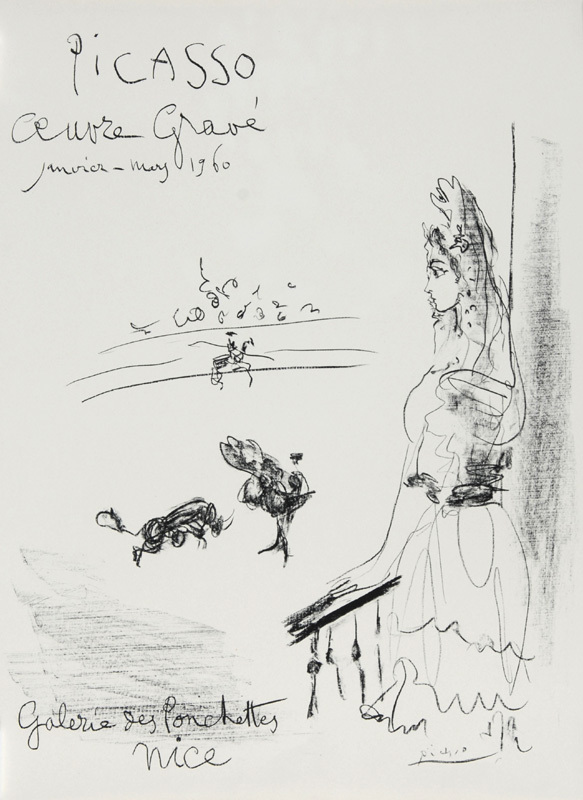 PICASSO
Œuvre Gravé
janvier - mars 1960
Galerie des Ponchettes
nice
picasso